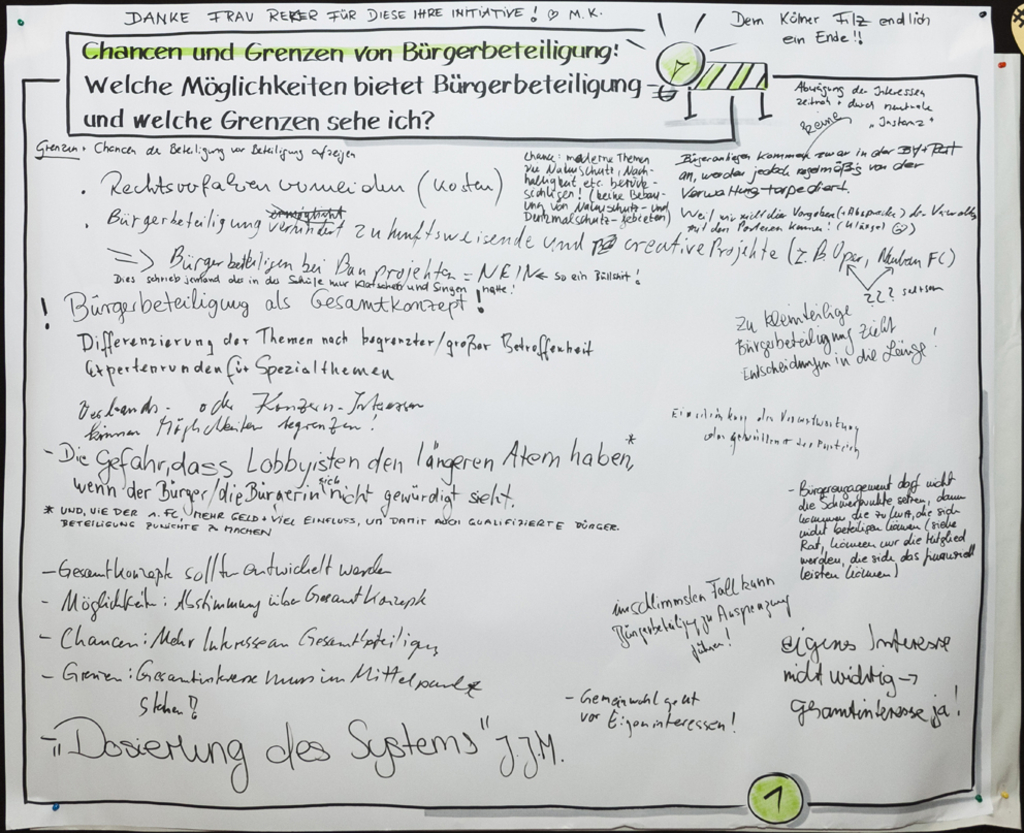 DANKE FRAU REKER FÜR DIESE IHRE INITIATIVE! ♡ M.K.
Dem Kölner Filz endlich
ein Ende!!
Chancen und Grenzen von Bürgerbeteiligung:
Welche Möglichkeiten bietet Bürgerbeteiligung
und welche Grenzen sehe ich?
Abwägung der Interessen
zeitnah + durch neutrale
"Instanz"
Grenzen + Chancen der Beteiligung vor Beteiligung aufzeigen
Chance: moderne Themen
wie Naturschutz, Nach-
haltigkeit etc. berück-
sichtigen! (keine Bebau-
ung von Naturschutz- und
Denkmalschutz-Gebieten)
Bürgeranliegen kommen zwar in der BV + Rat
an, werden jedoch regelmäßig von der
Verwaltung torpediert.
Weil wir nicht die Vorgaben (+ Absprachen) der Verwaltg
mit den Parteien kennen! (Klüngel)
• Rechtsverfahren vermeiden (Kosten)
• Bürgerbeteiligung ermöglicht verhindert zukunftsweisende und creative Projekte (z.B. Oper, Neubau FC)
⇒ Bürgerbeteiligen bei Bauprojekten = NEIN ← so ein Bullshit!
Dies schrieb jemand der in der Schule nur Klatschen und Singen hatte!
??? seltsam
! Bürgerbeteiligung als Gesamtkonzept!
Differenzierung der Themen nach begrenzter/großer Betroffenheit
Expertenrunden für Spezialthemen
Zu kleinteilige
Bürgerbeteiligung zieht
Entscheidungen in die Länge!
Verbands- oder Konzern-Interessen
können Möglichkeiten begrenzen!
der Verantwortung
- Die Gefahr, dass Lobbyisten den längeren Atem haben,*
wenn der Bürger/die Bürgerin sich nicht gewürdigt sieht.
* UND, WIE DER 1. FC, MEHR GELD + VIEL EINFLUSS, UM DAMIT AUCH QUALIFIZIERTE BÜRGER.
BETEILIGUNG ZUNICHTE ZU MACHEN
- Bürgerengagement darf nicht
die Schwerpunkte setzen, dann
kommen die zu kurz, die sich
nicht beteiligen können (siehe
Rat, können nur die Mitglied
werden, die sich das finanziell
leisten können)
- Gesamtkonzepte sollten entwickelt werden
- Möglichkeit: Abstimmung über Gesamtkonzepte
- Chancen: Mehr Interesse an Gesamtbeteiligung
- Grenzen: Gesamtinteresse muss im Mittelpunkt
stehen!
im schlimmsten Fall kann
Bürgerbeteiligung zu Ausgrenzung
führen!
eigenes Interesse
nicht wichtig →
gesamtinteresse ja!
- Gemeinwohl geht
vor Eigeninteressen!
- "Dosierung des Systems" J.J.M.
1